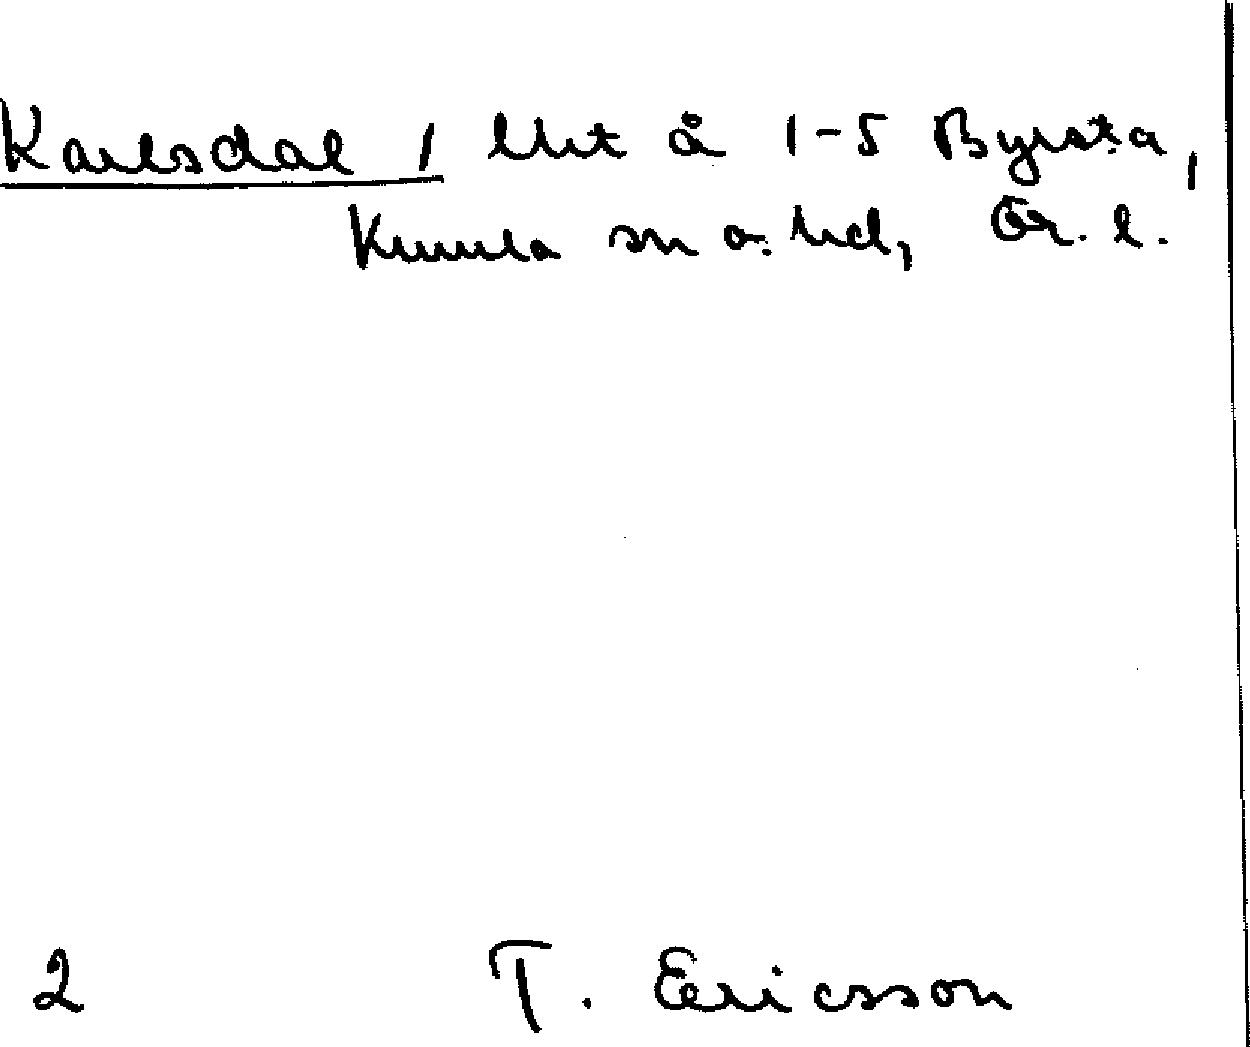 Karlsdal 1 lht å 1-5 Byrsta,
Kumla sn o. hd, Ör. l.
2 T. Ericsson